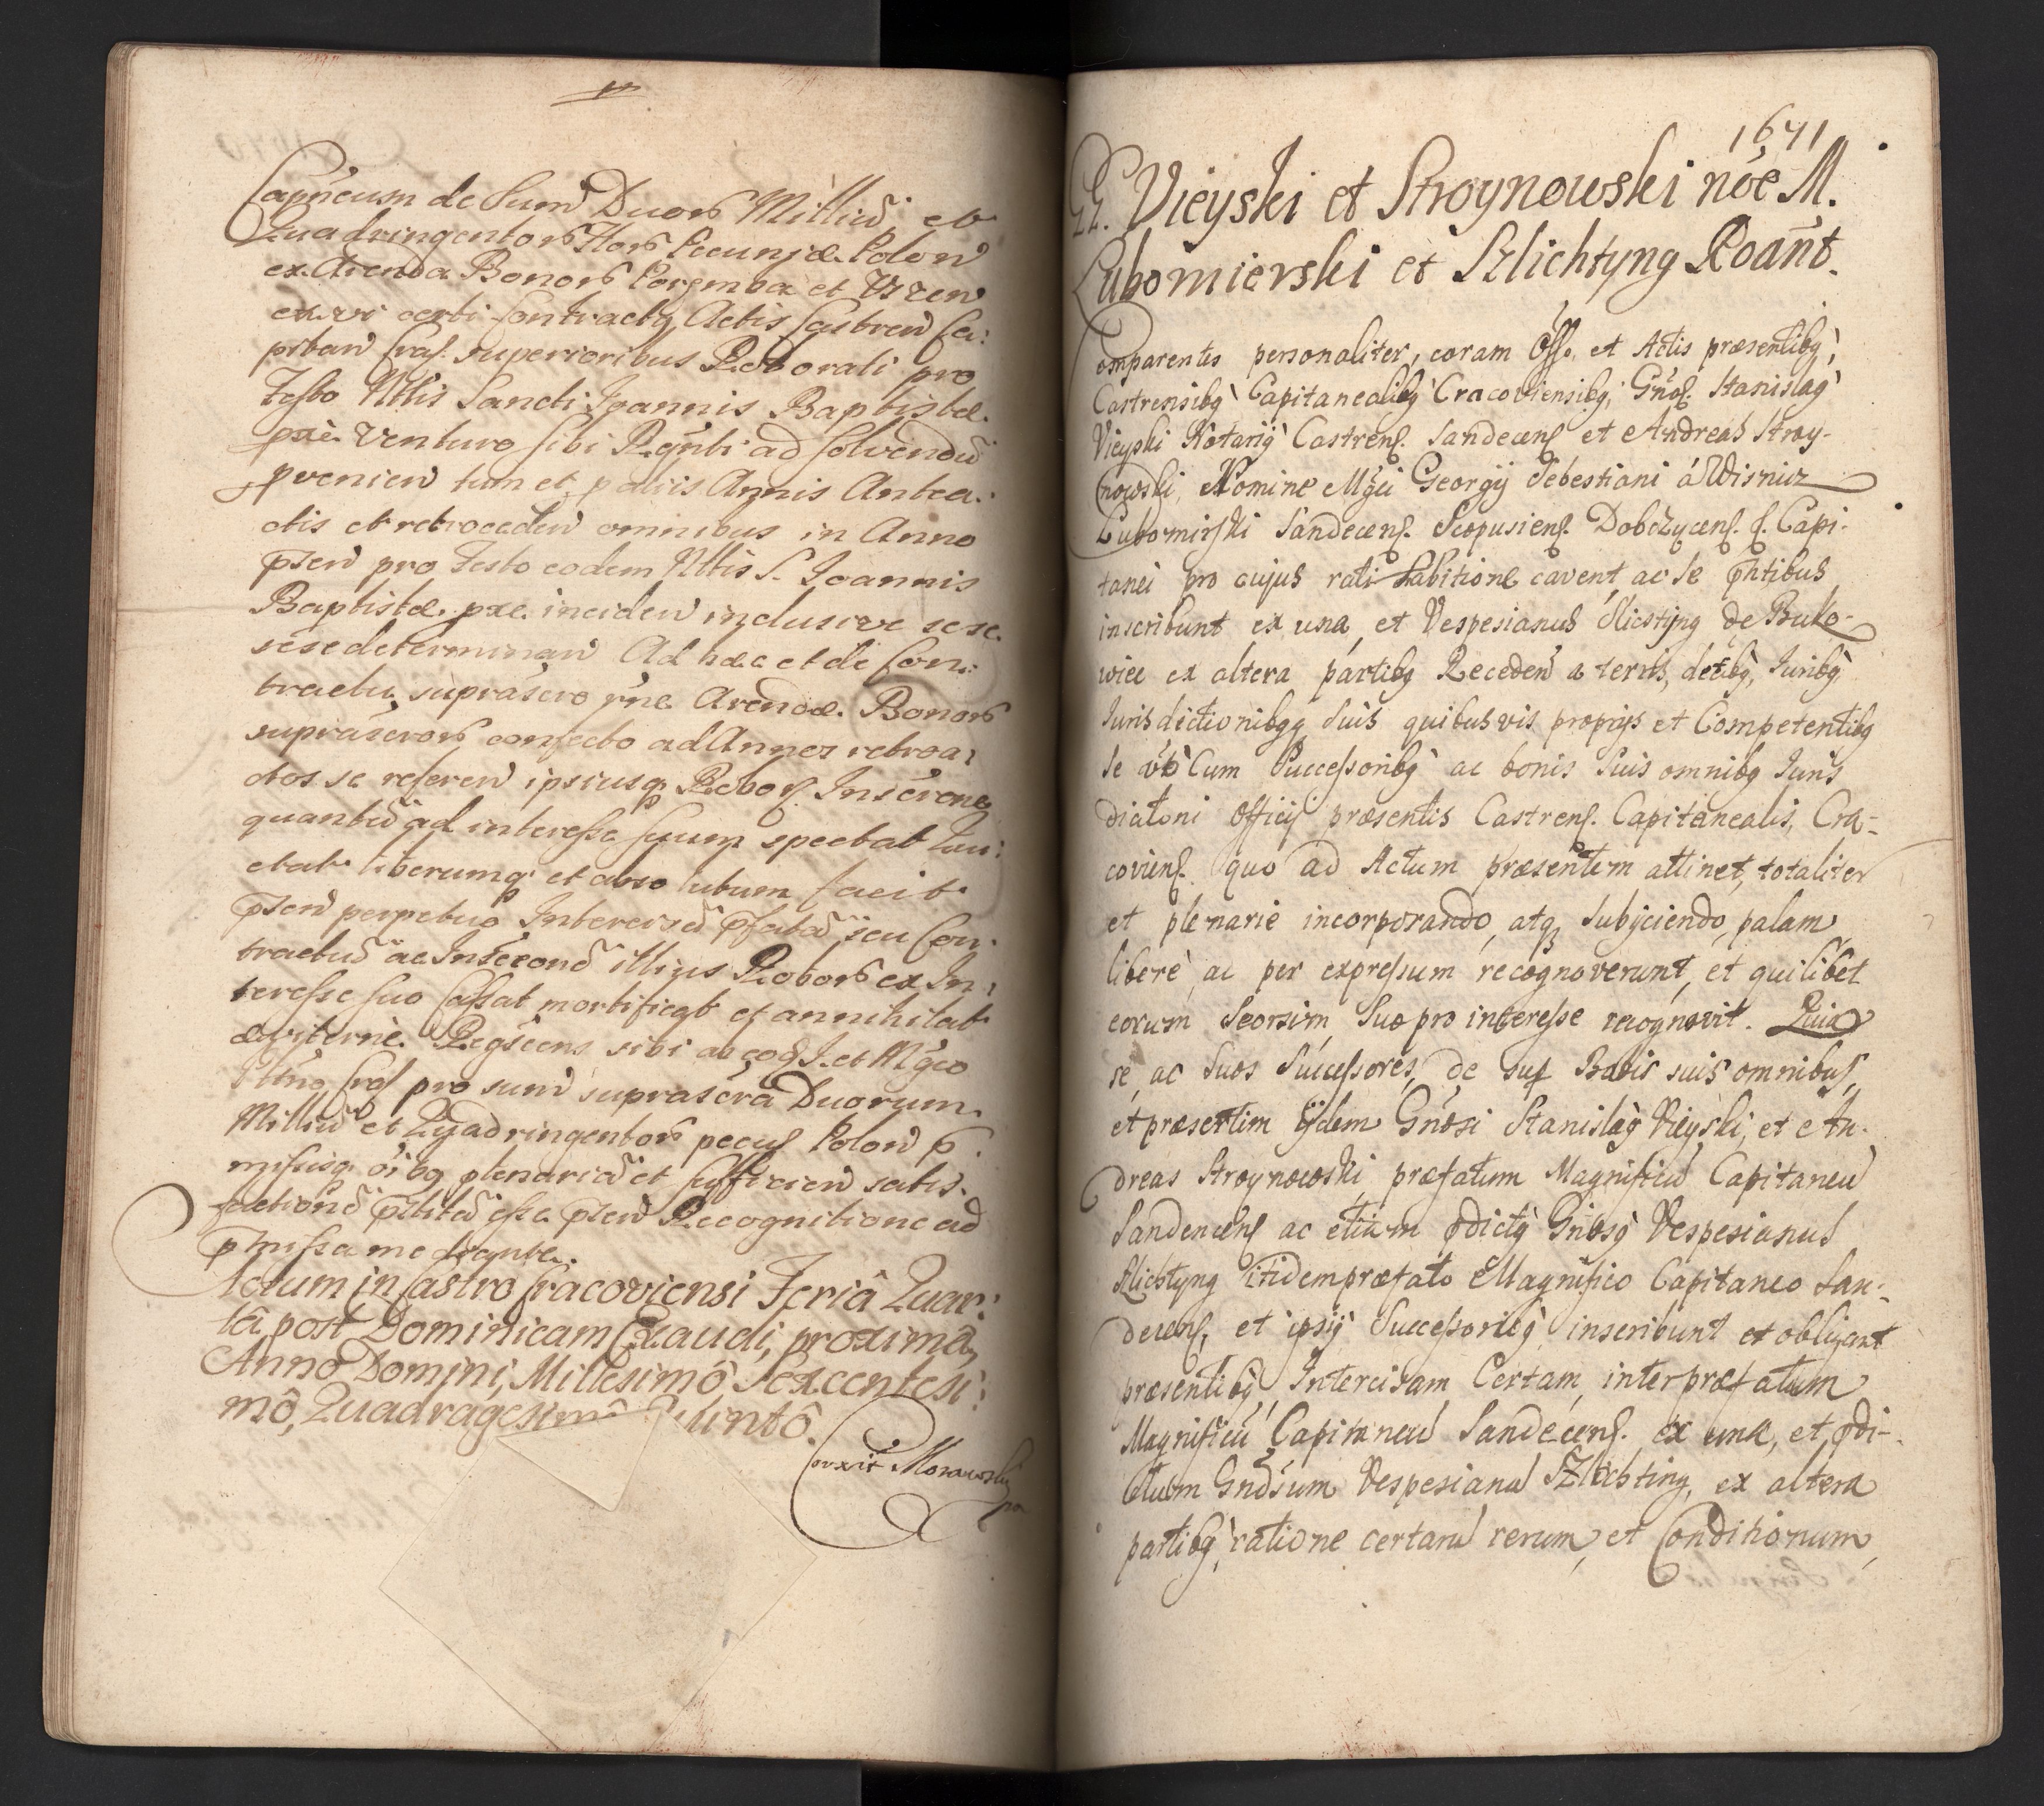 Capneum de Sum Duor Milliū et
Quadringentor flor Pecuniæ Polon
ex Arenda Bonor Porgmba et
ex vi certi Contractq Actis Castren Ca:
pitan Crac. superioribus Roborati pro
Festo Nttis Sancti Joannis Baptistæ
pxe venturo sibi Rgnti ad solvendū
pvenien tum et pariis Annis Antea:
ctis et retroceden omnibus in Anno
pten pro Festo eodem Nttis S. Joannis
Baptistæ pxe inciden inclusive sese
sese determinan Ad hæc et de Con:
tractu suprascro rne Arendæ Bonor
suprascror confecto ad Annos retroa:
ctos se referen ipsiusq Robor Inscrone
quantū ad interesse suum spectat Qui:
etat liberumq et absolutum facit
pten perpetuo Intercisā pfatā seu Con:
tractū ac Inscronē illius Robor ex In:
teresse suo cassat mortificat et annihilat
æviterne. Rgscens sibi ab eod J. et Mgco
Ptno Crac pro sum suprascra Duorum
Milliū et Quadringentor pecuĺ Polon p
missisq oibq plenariā et sufficien satis:
factionē pstitā esse pten Recognitione ad
pmissa me dicante.
Actum in Castro Cracoviensi Feriâ Quar:
tâ post Dominicam Exaudi, proxima,
Anno Domini, Millesimô Sexcentesi:
mô, Quadragesimô Quintô.
Corexit Morawsky
1671
GG. Vieyski et Stroynowski nōe M.
Lubomierski et Szlichtyng Roant.
Comparentes personaliter, coram Offo. et Actis præsentibq,
Castrensibq Capitanealibq Cracoviensibq, Gnos. Stanislaq
Vieyski Notariq Castrens. Sandecens. et Andreas Stroy-
nowski, Nomine Mgci Georgij Sebestiani á Wisnicz
Lubomirski Sandecens. Scepusiens. Dobczycens. s. Capi-
tanei pro cujus rati habitione cavent, ac se phtibus
inscribunt ex una, et Vespesianus Slicstÿng de Buko-
wiec ex altera partibq Receden a terris, detibq, Juribq
Jurisdictionibqq suis quibusvis proprijs et Competentibq
se vō Cum Successoribq ac bonis suis omnibq Juris
dictioni Officij præsentis Castrens. Capitanealis, Cra-
coviens. quo ad Actum præsentem attinet, totaliter
et plenariè incorporando, atq subijciendo, palam
liberè ac per expressum recognoverunt, et quilibet
eorum Seorsim, suo pro interesse recognovit. Quia
se, ac suos Successores, de sup Bonis suis omnibus,
et præsertim ijdem Gnosi Stanislaq Vieyski, et An-
dreas Stroynowski præfatum Magnificū Capitaneū
Sandencens ac etiam pdictq Gnosq Vespesianus
Szlichtyng itidem præfato Magnifico Capitaneo San-
decens, et ipsiq Successoribq inscribunt et obligant
præsentibq, Intercisam Certam, inter præfatum
Magnificū Capitaneū Sandecens. ex una, et pdi-
ctum Gnosum Vespesianū Szlichting, ex altera
partibq, ratione certarū rerum, et Conditionum